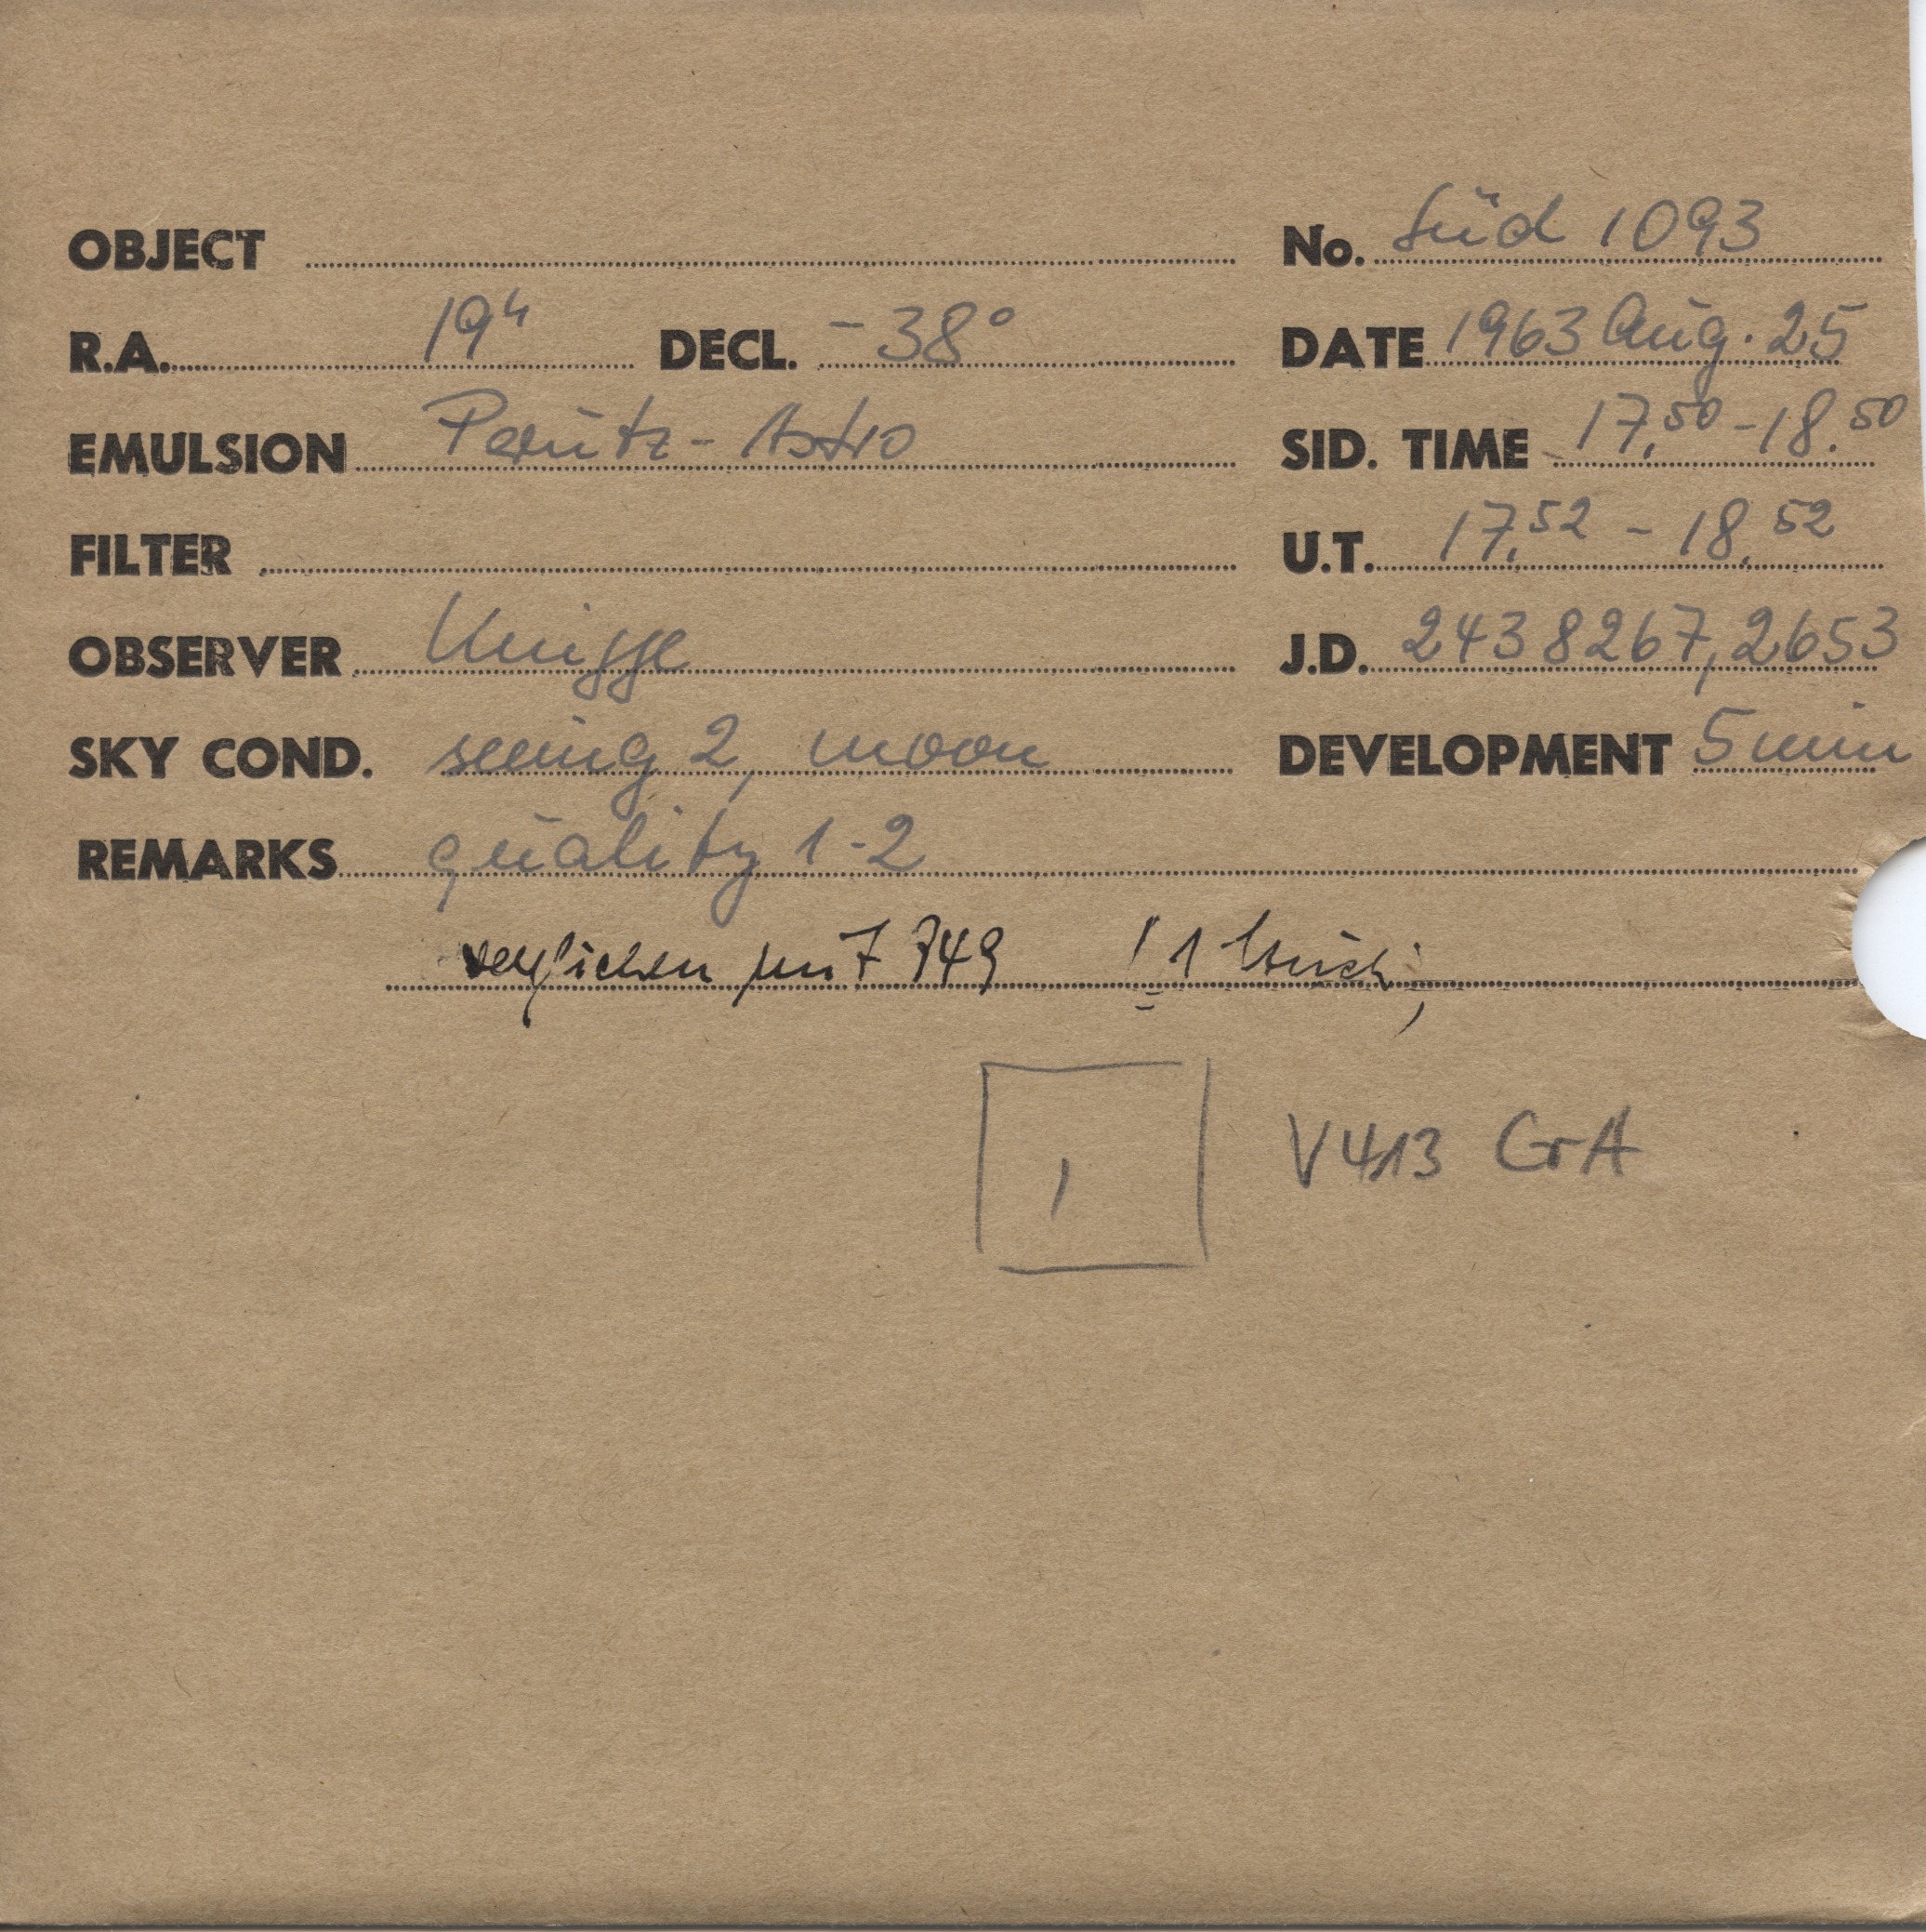 OBJECT No. Süd 1093
R.A. 19h DECL. -38° DATE 1963 Aug. 25
EMULSION Perutz-Astro SID. TIME 17,50-18.50
FILTER U.T. 17,52 - 18,52
OBSERVER Knigge J.D. 2438267,2653
SKY COND. seeing 2, moon DEVELOPMENT 5 min
REMARKS quality 1-2
verglichen mit 749 ! 1 Strich
V413 CrA